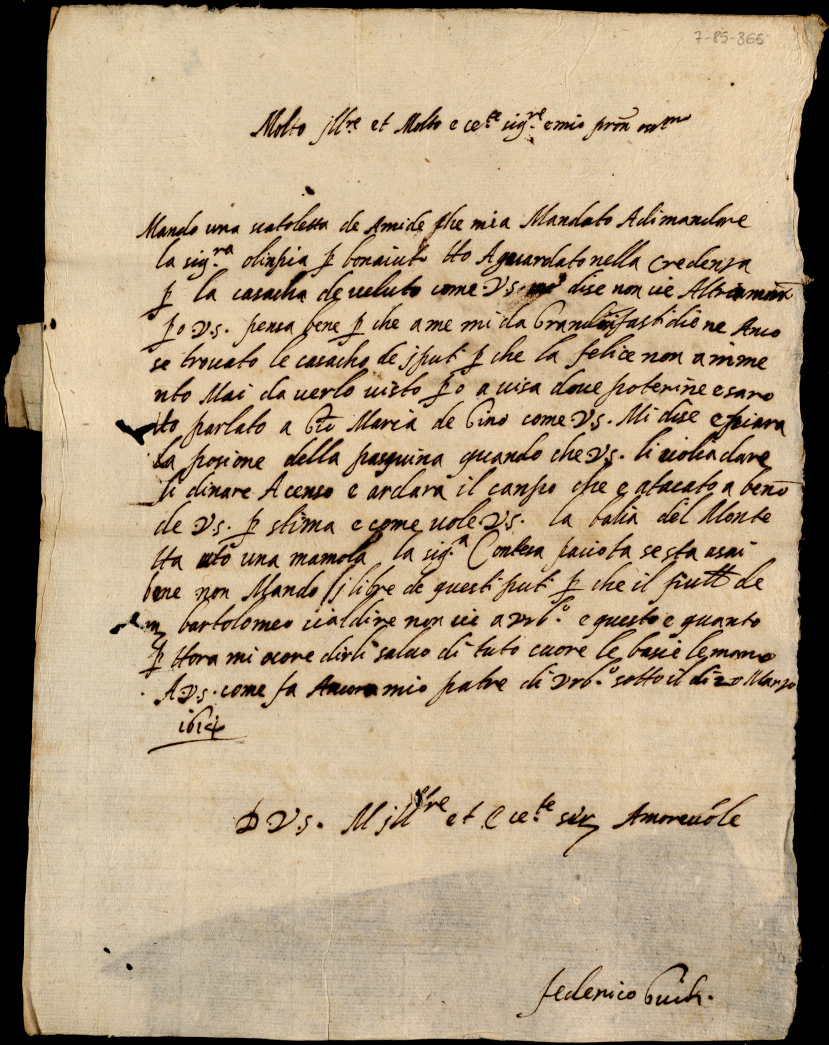 7-85-365
Molto jll.re et Molto ecc.te sig.re e mio pron oss.mo
Mando una scatoletta de Amide che mia Mandato Adimandare
la sig.ra olinpia p bonaiuti tto Aguardato nella Credenza
p la casacha de veluto come VS. dise non vie Altramente
po VS. pensa bene p che a me mi da Grandi fastidi e ne Anco
se trovato le casacho de j puti p che la felice non a rime
nto Mai da verlo visto po a visa dove poterine esaro
tto parlato a Maria de Gino come VS. Mi dise e piara
la posione della pasquina quando che VS. li volia dare
li dinare A censo e ardara il canpo che e atacato a beno
de VS. p stima e come vole VS. la balia del Monte
tta uto una mamola la sig.a Contesa paciota se sta asai
bene non Mando j libre de questi puti p che il de
bartolomeo vialdire non vie a Vrb.o e questo e quanto
p ttora mi ocore dirli salvo di tuto cuore le bacie le mano
A VS. come fa Ancora mio patre di Vrb.o sotto il di 20 Marzo
1614
D VS. M jll.re et Ecce.te ser Amorevole
federico